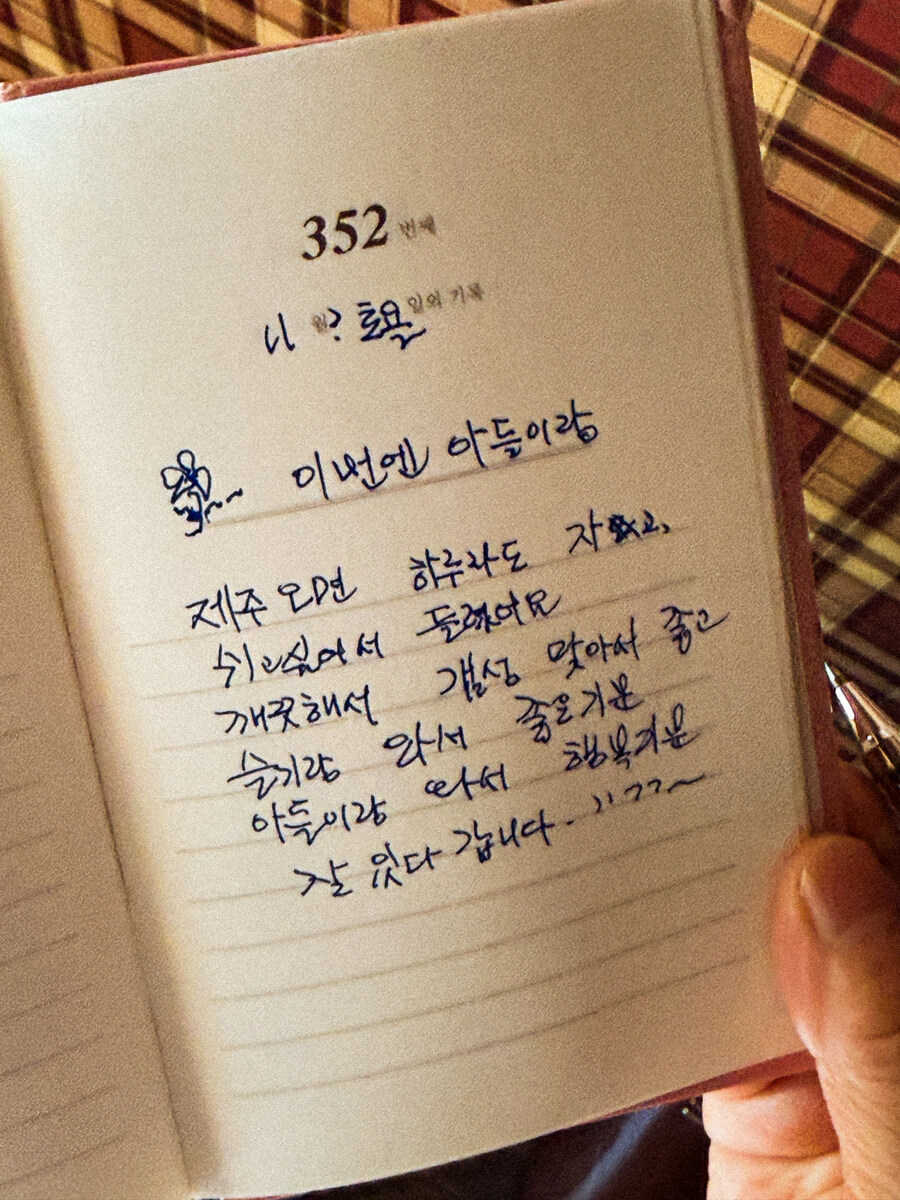 352 번째
11 월? 토요일 일의 기록
이번엔 아들이랑
제주오면 하루라도 자고,
쉬고싶어서 들렸어요
깨끗해서 갬성 맞아서 좋고
슬기랑 와서 좋은기분
아들이랑 와서 행복기분
잘 있다 갑니다. ~